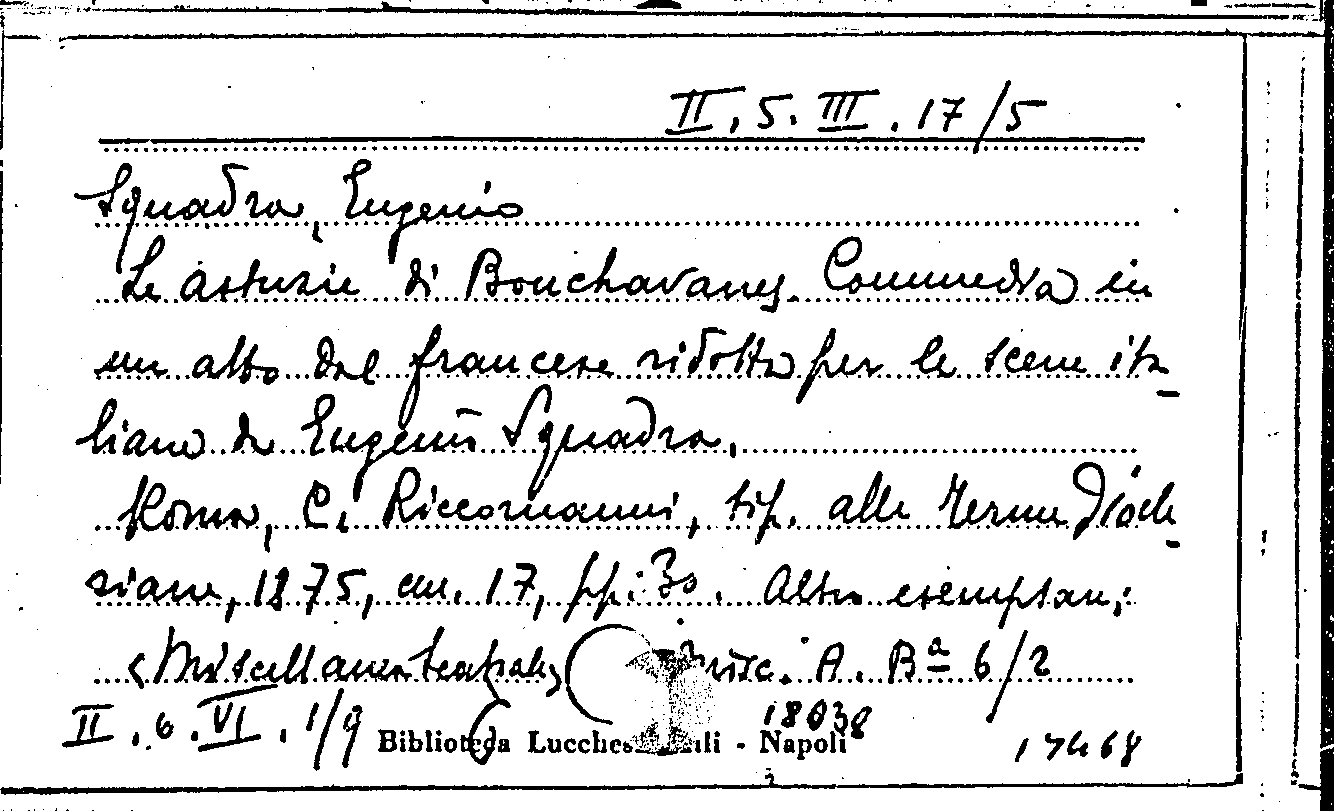 II. 5. III. 17/5
Squadra, Eugenio
Le astuzie di Bouchavanes. Commedia in
un atto dal francese ridotta per le scene ita-
liane da Eugenio Squadra.
Roma, C. Riccomanni, tip. alle Terme Diocle-
ziane, 1875, cm. 17, pp. 30. Altri esemplari:
(Miscellanea teatrale) Misc. A. Bª 6/2
II. 6. VI. 1/9
18038
Biblioteca Lucchesi Palli - Napoli
17468